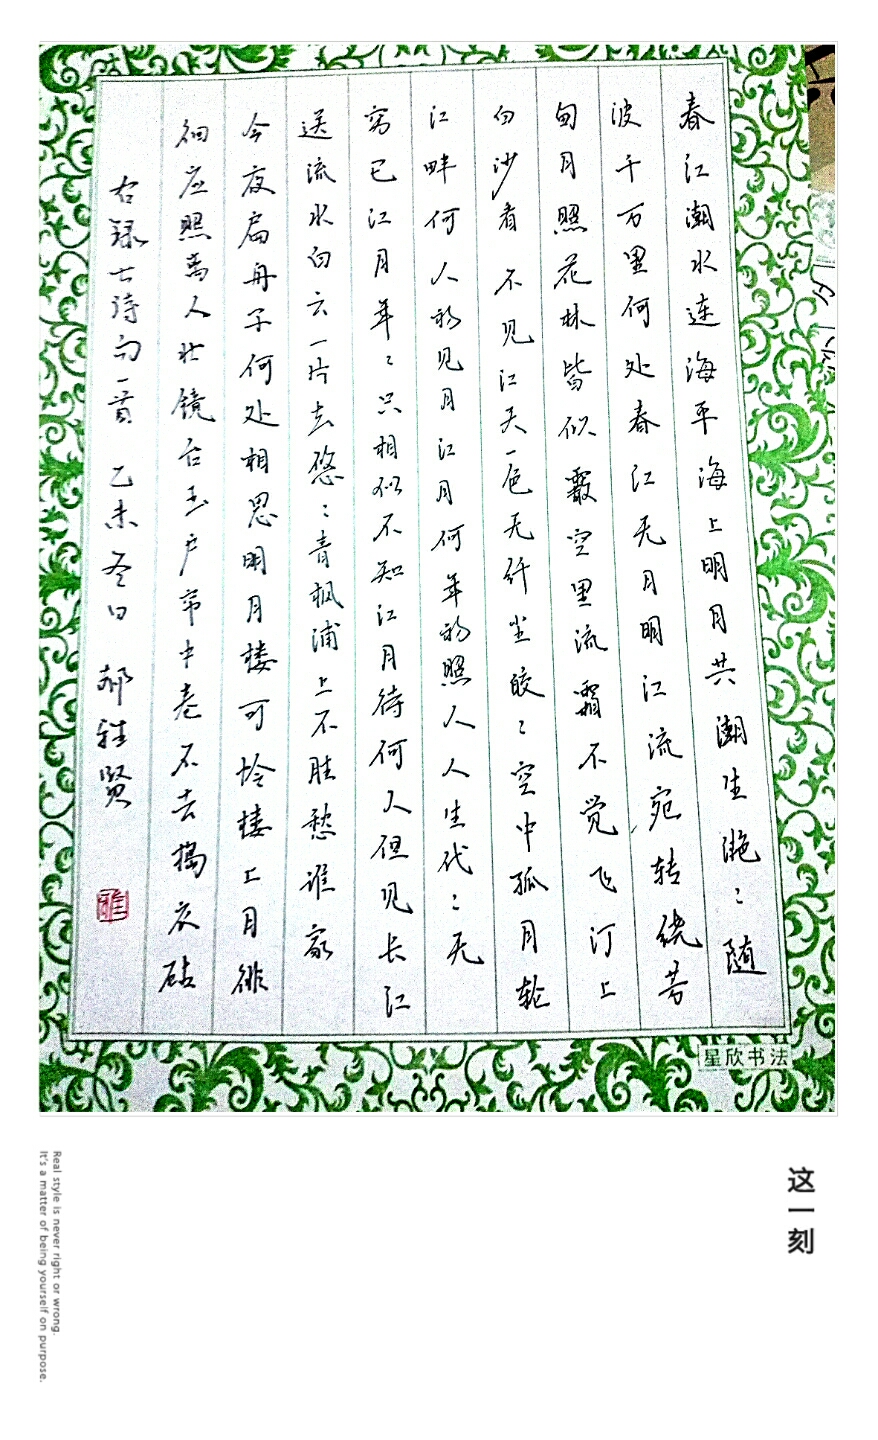 春江潮水连海平海上明月共潮生滟〻随
波千万里何处春江无月明江流宛转绕芳
甸月照花林皆似霰空里流霜不觉飞汀上
白沙看不见江天一色无纤尘皎〻空中孤月轮
江畔何人初见月江月何年初照人人生代〻无
穷已江月年〻只相似不知江月待何人但见长江
送流水白云一片去悠〻青枫浦上不胜愁谁家
今夜扁舟子何处相思明月楼可怜楼上月徘
徊应照离人妆镜台玉户帘中卷不去捣衣砧
右录古诗句一首 乙未冬日 郝雅贤
雅
星欣书法
这一刻
Real style is never right or wrong.
It's a matter of being yourself on purpose.